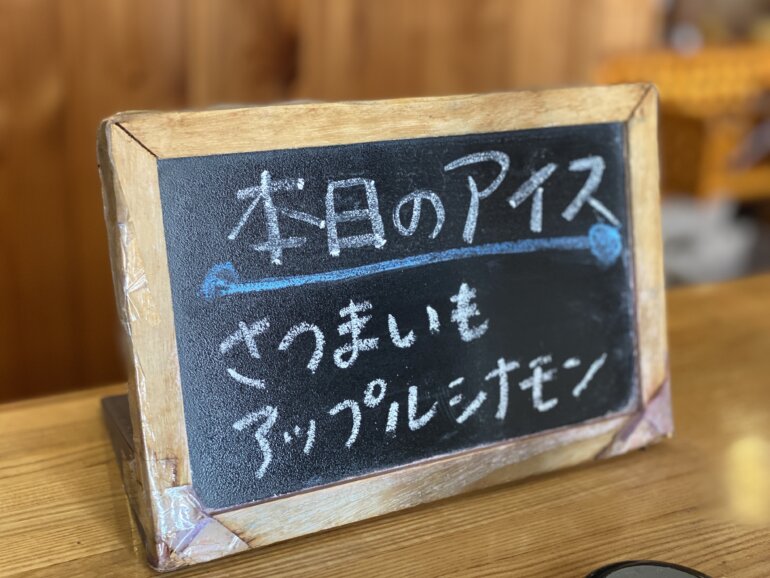 本日のアイス
さつまいも
アップルシナモン